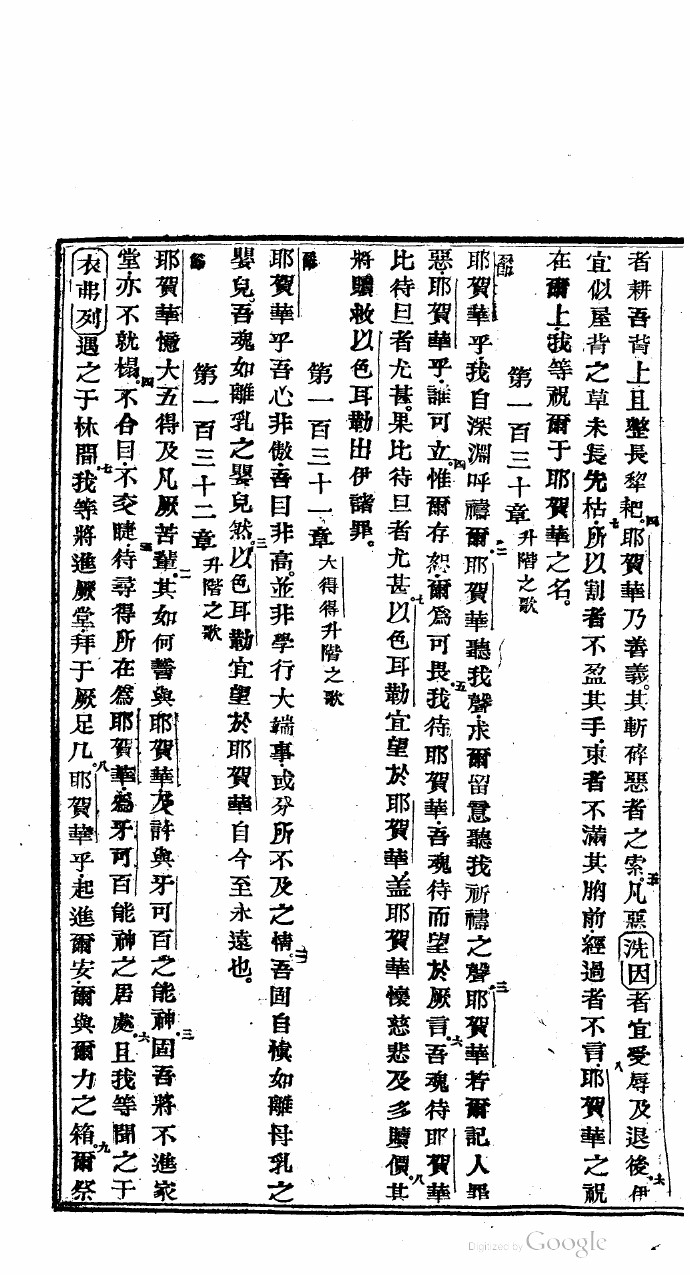 者耕吾背上且整長犂耙四耶賀華乃善義其斬碎惡者之索五凡惡洗因者宜受辱及退後六伊
宜似屋背之草未長先枯七所以割者不盈其手束者不滿其胸前經過者不言八耶賀華之祝
在爾上我等祝爾于耶賀華之名
第一百三十章升階之歌
耶賀華乎我自深淵呼禱爾二耶賀華聽我聲求爾留意聽我祈禱之聲三耶賀華若爾記人罪
惡耶賀華乎誰可立四惟爾存恕爾爲可畏五我待耶賀華吾魂待而望於厥言六吾魂待耶賀華
比待旦者尤甚果比待旦者尤甚七以色耳勒宜望於耶賀華葢耶賀華懷慈悲及多贖價八其
將贖救以色耳勒出伊諸罪
第一百三十一章大得得升階之歌
耶賀華乎吾心非傲吾目非高並非學行大端事或分所不及之情二吾固自懷如離母乳之
嬰兒吾魂如離乳之嬰兒然三以色耳勒宜望於耶賀華自今至永遠也
第一百三十二章升階之歌
耶賀華憶大五得及凡厥苦輩二其如何誓與耶賀華及許與牙可百之能神三固吾將不進家
堂亦不就榻四不合目不交睫五待尋得所在爲耶賀華爲牙可百能神之居處六且我等聞之于
衣弗列遇之于林間七我等將進厥堂拜于厥足几八耶賀華乎起進爾安爾與爾力之箱九爾祭
Digitized by Google